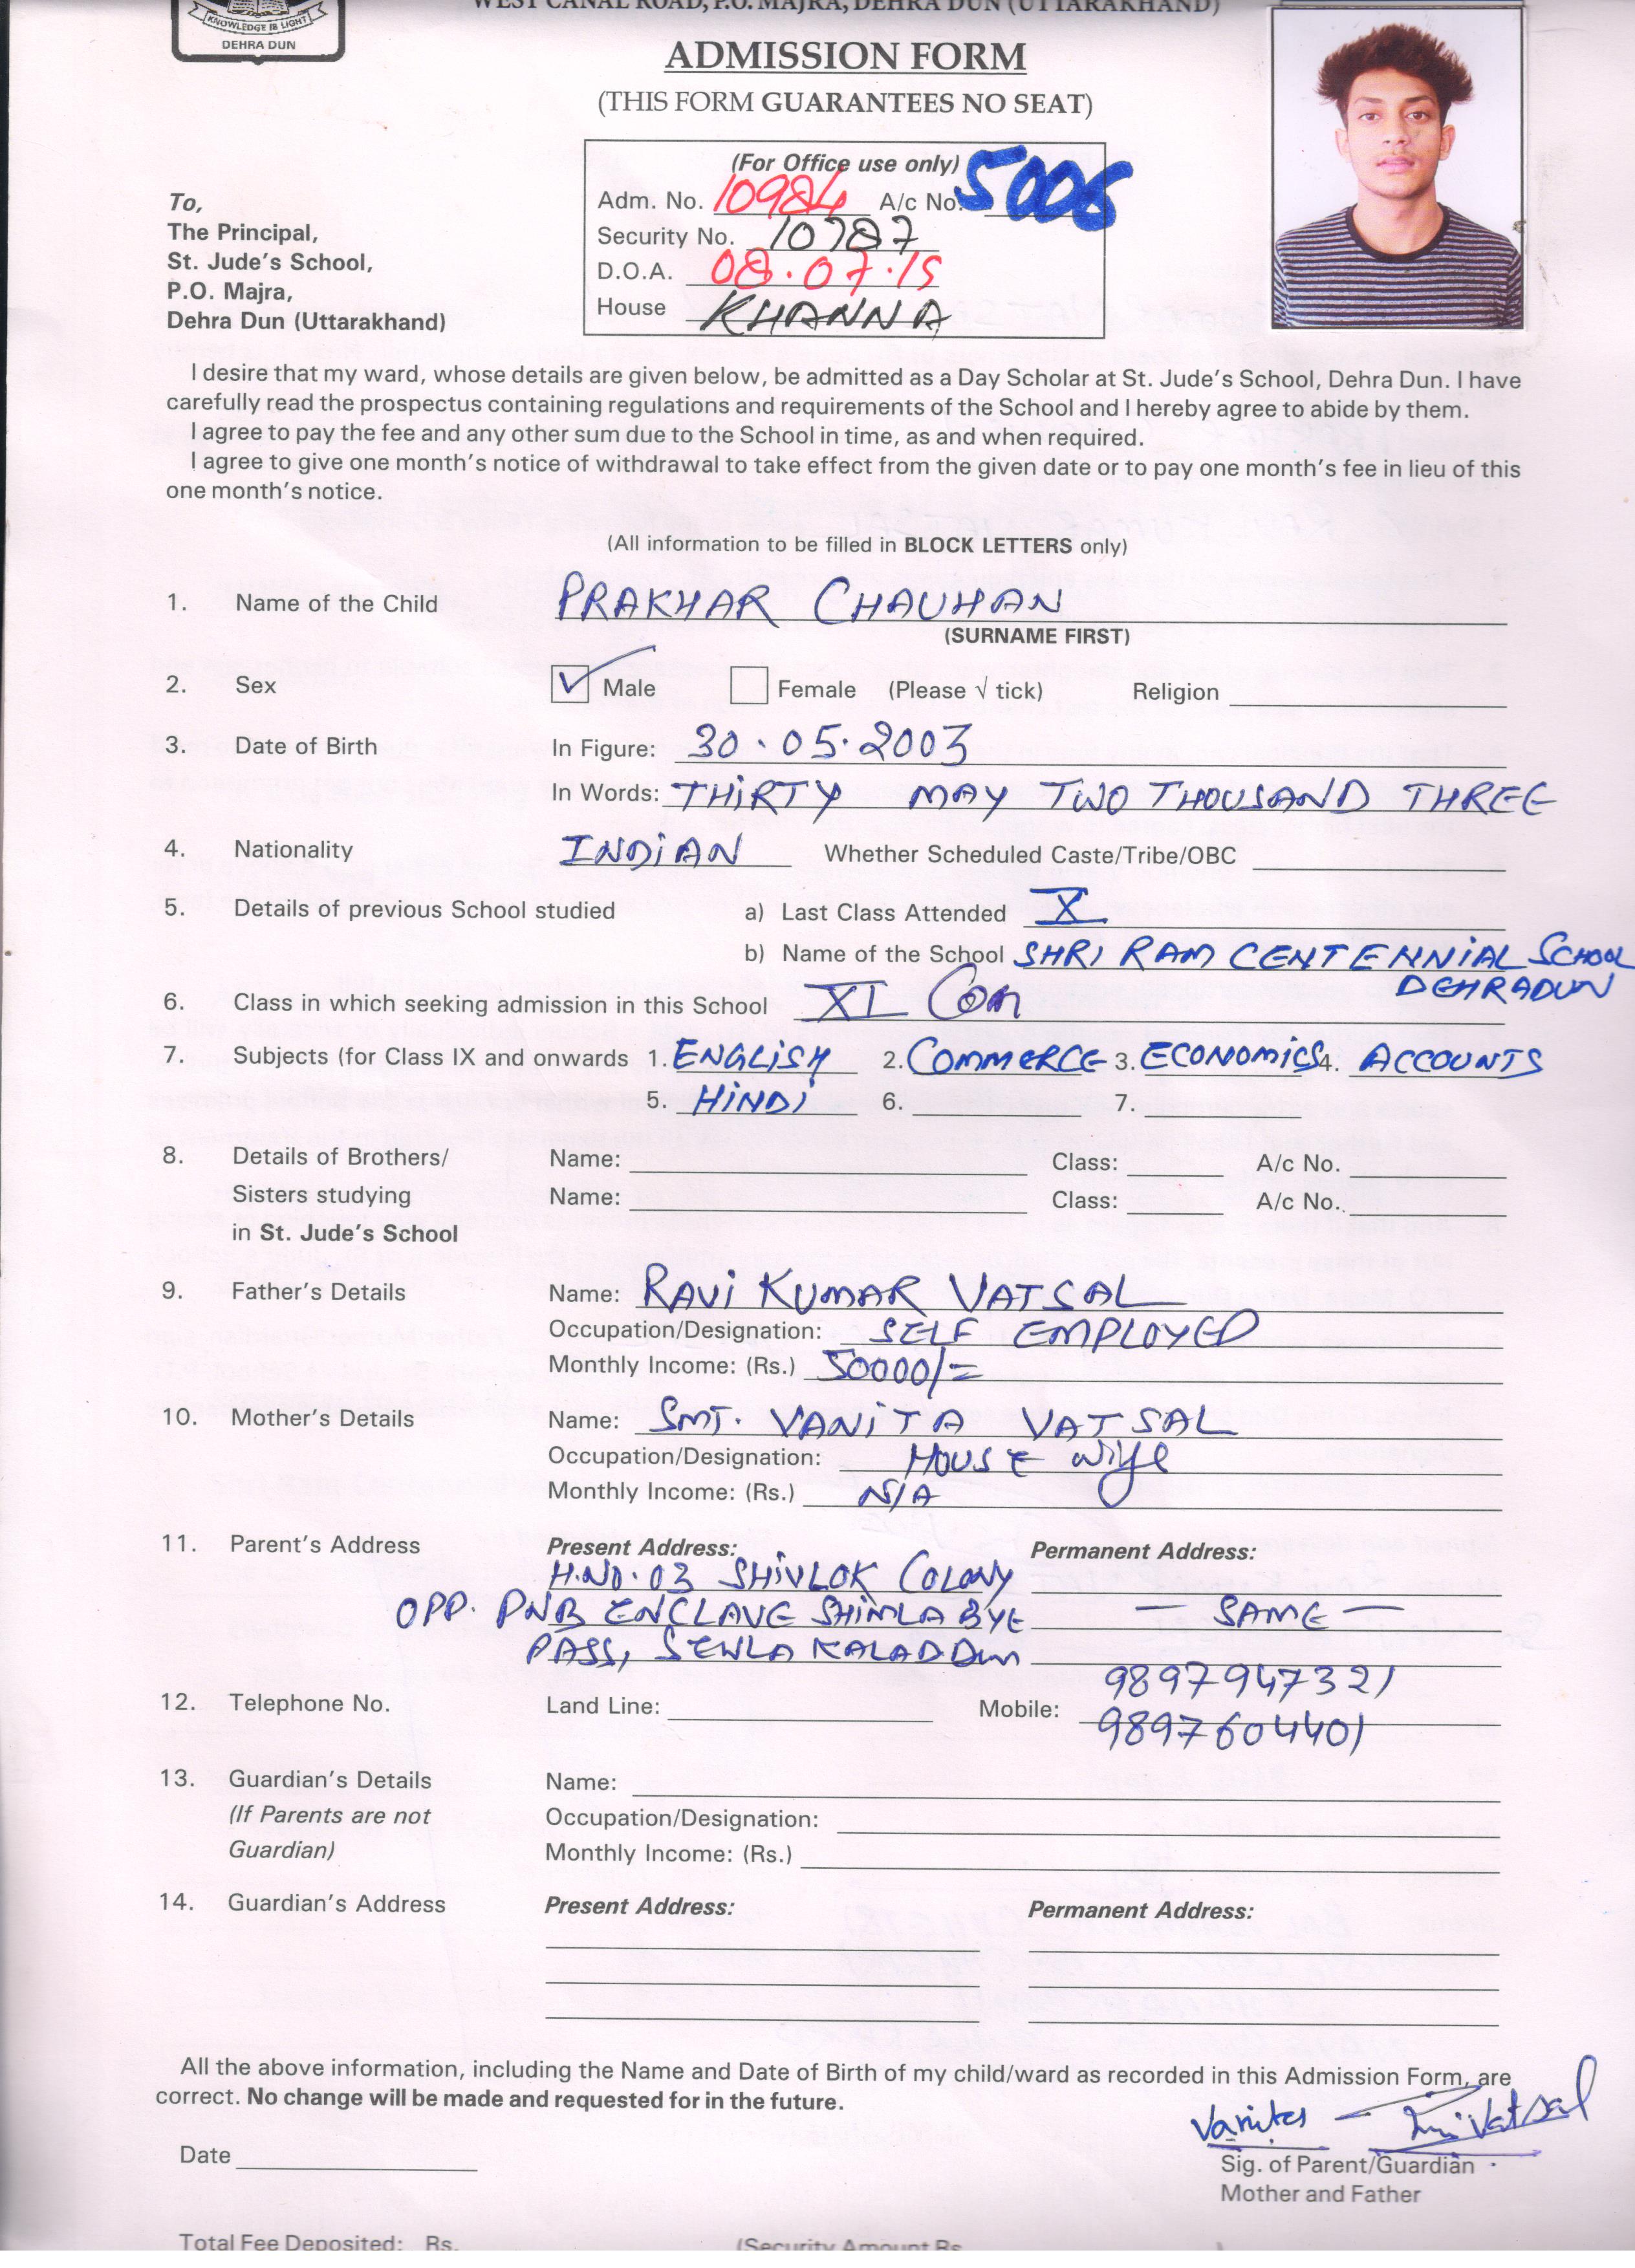 KNOWLEDGE IS LIGHT
DEHRA DUN
WEST CANAL ROAD, P.O. MAJRA, DEHRA DUN (UTTARAKHAND)
ADMISSION FORM
(THIS FORM GUARANTEES NO SEAT)
(For Office use only)
Adm. No. 10984 A/c No. 5006
Security No. 10787
D.O.A. 08.07.19
House KHANNA
To,
The Principal,
St. Jude's School,
P.O. Majra,
Dehra Dun (Uttarakhand)
I desire that my ward, whose details are given below, be admitted as a Day Scholar at St. Jude's School, Dehra Dun. I have
carefully read the prospectus containing regulations and requirements of the School and I hereby agree to abide by them.
I agree to pay the fee and any other sum due to the School in time, as and when required.
I agree to give one month's notice of withdrawal to take effect from the given date or to pay one month's fee in lieu of this
one month's notice.
(All information to be filled in BLOCK LETTERS only)
1. Name of the Child PRAKHAR CHAUHAN
(SURNAME FIRST)
2. Sex Male Female (Please √ tick) Religion
3. Date of Birth In Figure: 30.05.2003
In Words: THIRTY MAY TWO THOUSAND THREE
4. Nationality INDIAN Whether Scheduled Caste/Tribe/OBC
5. Details of previous School studied a) Last Class Attended X
b) Name of the School SHRI RAM CENTENNIAL SCHOOL
DEHRADUN
6. Class in which seeking admission in this School XI Com
7. Subjects (for Class IX and onwards 1. ENGLISH 2. COMMERCE 3. ECONOMICS 4. ACCOUNTS
5. HINDI 6. 7.
8. Details of Brothers/ Name: Class: A/c No.
Sisters studying Name: Class: A/c No.
in St. Jude's School
9. Father's Details Name: RAVI KUMAR VATSAL
Occupation/Designation: SELF EMPLOYED
Monthly Income: (Rs.) 50000/=
10. Mother's Details Name: SMT. VANITA VATSAL
Occupation/Designation: HOUSE wife
Monthly Income: (Rs.) N/A
11. Parent's Address Present Address: Permanent Address:
H.NO.03 SHIVLOK COLONY
OPP. PNB ENCLAVE SHIMLA BYE — SAME —
PASS, SEWLA KALA D.Dun
9897947321
12. Telephone No. Land Line: Mobile:
9897604401
13. Guardian's Details Name:
(If Parents are not Occupation/Designation:
Guardian) Monthly Income: (Rs.)
14. Guardian's Address Present Address: Permanent Address:
All the above information, including the Name and Date of Birth of my child/ward as recorded in this Admission Form, are
correct. No change will be made and requested for in the future.
Vanita Vatsal
Date
Sig. of Parent/Guardian
Mother and Father
Total Fee Deposited: Rs. (Security Amount Rs. )